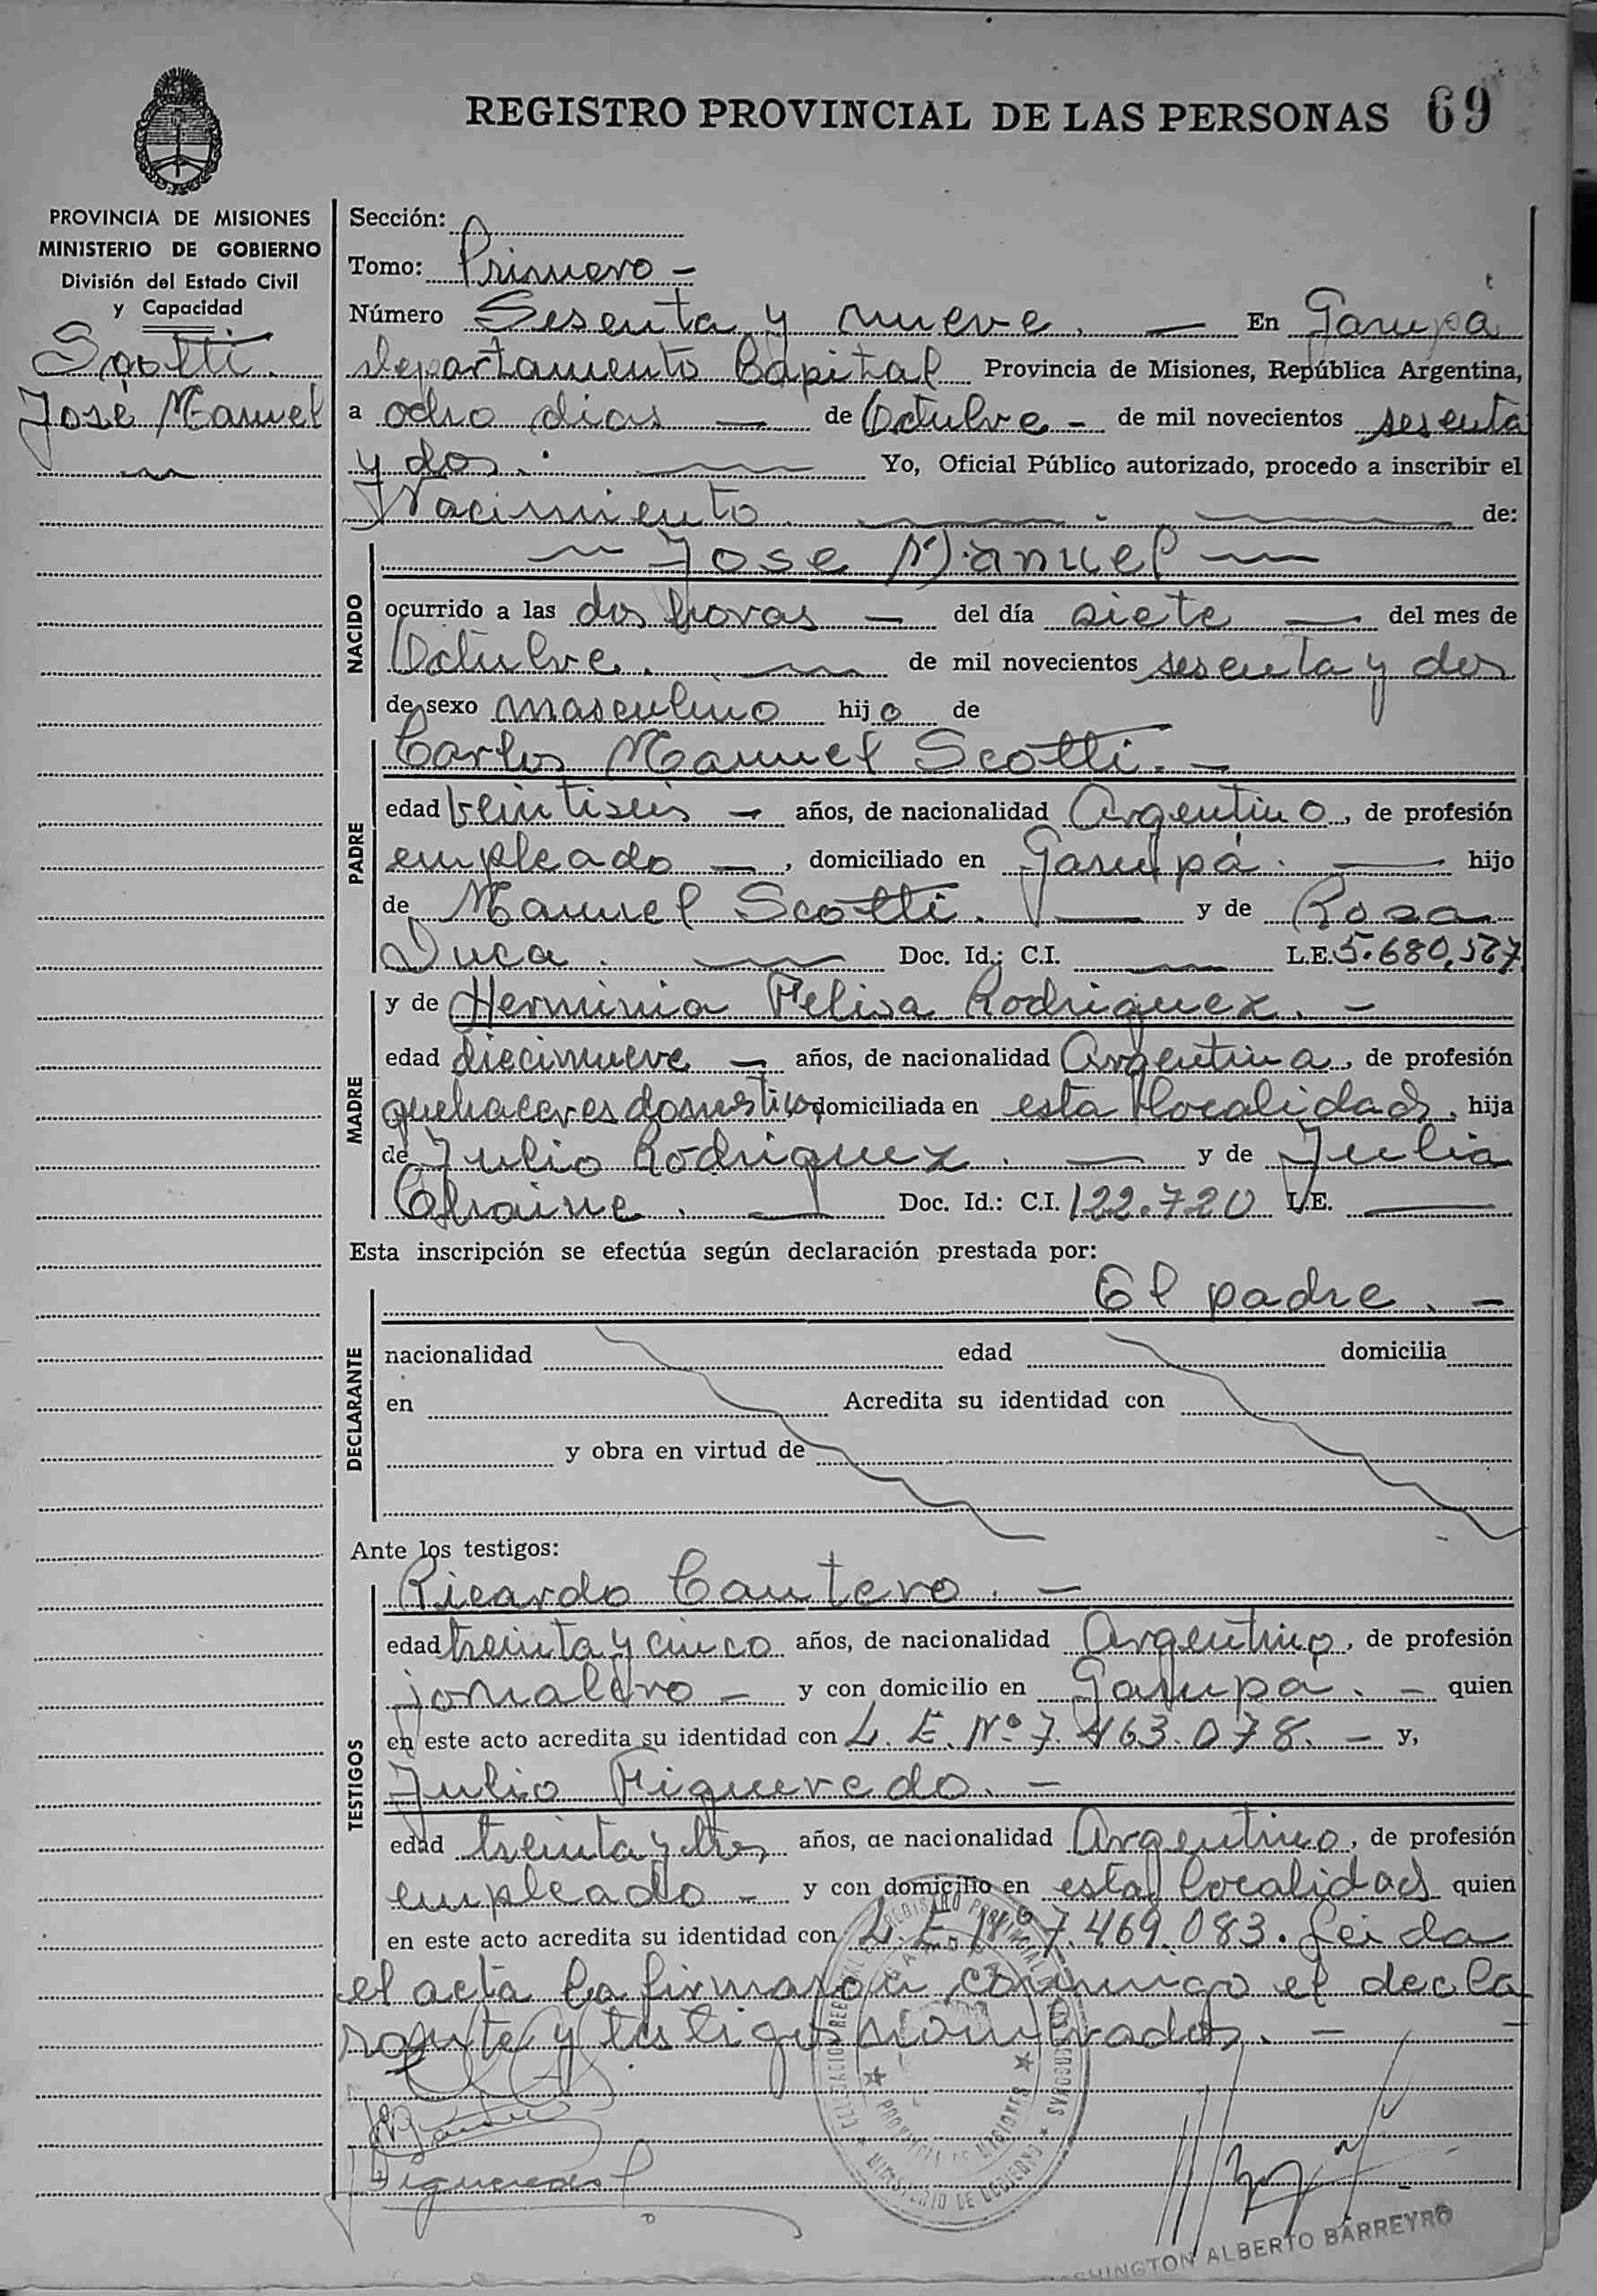 REGISTRO PROVINCIAL DE LAS PERSONAS 69
PROVINCIA DE MISIONES
MINISTERIO DE GOBIERNO
División del Estado Civil
y Capacidad
Scotti.
José Manuel
Sección:
Tomo: Primero -
Número Sesenta y nueve. — En Garupá
departamento Capital Provincia de Misiones, República Argentina,
a ocho dias — de Octubre - de mil novecientos sesenta
y dos. — Yo, Oficial Público autorizado, procedo a inscribir el
Nacimiento — de:
NACIDO
— Jose Manuel —
ocurrido a las dos horas — del día siete — del mes de
Octubre. — de mil novecientos sesenta y dos
de sexo masculino hijo de
PADRE
Carlos Manuel Scotti. -
edad veintiseis - años, de nacionalidad Argentino, de profesión
empleado —, domiciliado en Garupá. — hijo
de Manuel Scotti. — y de Rosa
Duca. — Doc. Id.: C.I. — L.E. 5.680.567
MADRE
y de Herminia Felisa Rodriguez. -
edad diecinueve - años, de nacionalidad Argentina, de profesión
quehaceres domesticos domiciliada en esta localidad, hija
de Julio Rodriguez. — y de Julia
Doc. Id.: C.I. 122.720 L.E. —
Esta inscripción se efectúa según declaración prestada por:
DECLARANTE
El padre. -
nacionalidad edad domicilia
en Acredita su identidad con
y obra en virtud de
Ante los testigos:
TESTIGOS
Ricardo Cantero. -
edad treinta y cinco años, de nacionalidad Argentino, de profesión
jornalero - y con domicilio en Garupá. - quien
en este acto acredita su identidad con L. E. Nº 7.463.078. - y,
Julio Figueredo. -
edad treinta y tres años, de nacionalidad Argentino, de profesión
empleado - y con domicilio en esta localidad quien
en este acto acredita su identidad con L. E. Nº 7.469.083. Leida
el acta la firmaron conmigo el decla
rante y testigos nombrados. -
Figueredo
PROVINCIA DE MISIONES
MINISTERIO DE GOBIERNO
ALBERTO BARREYRO